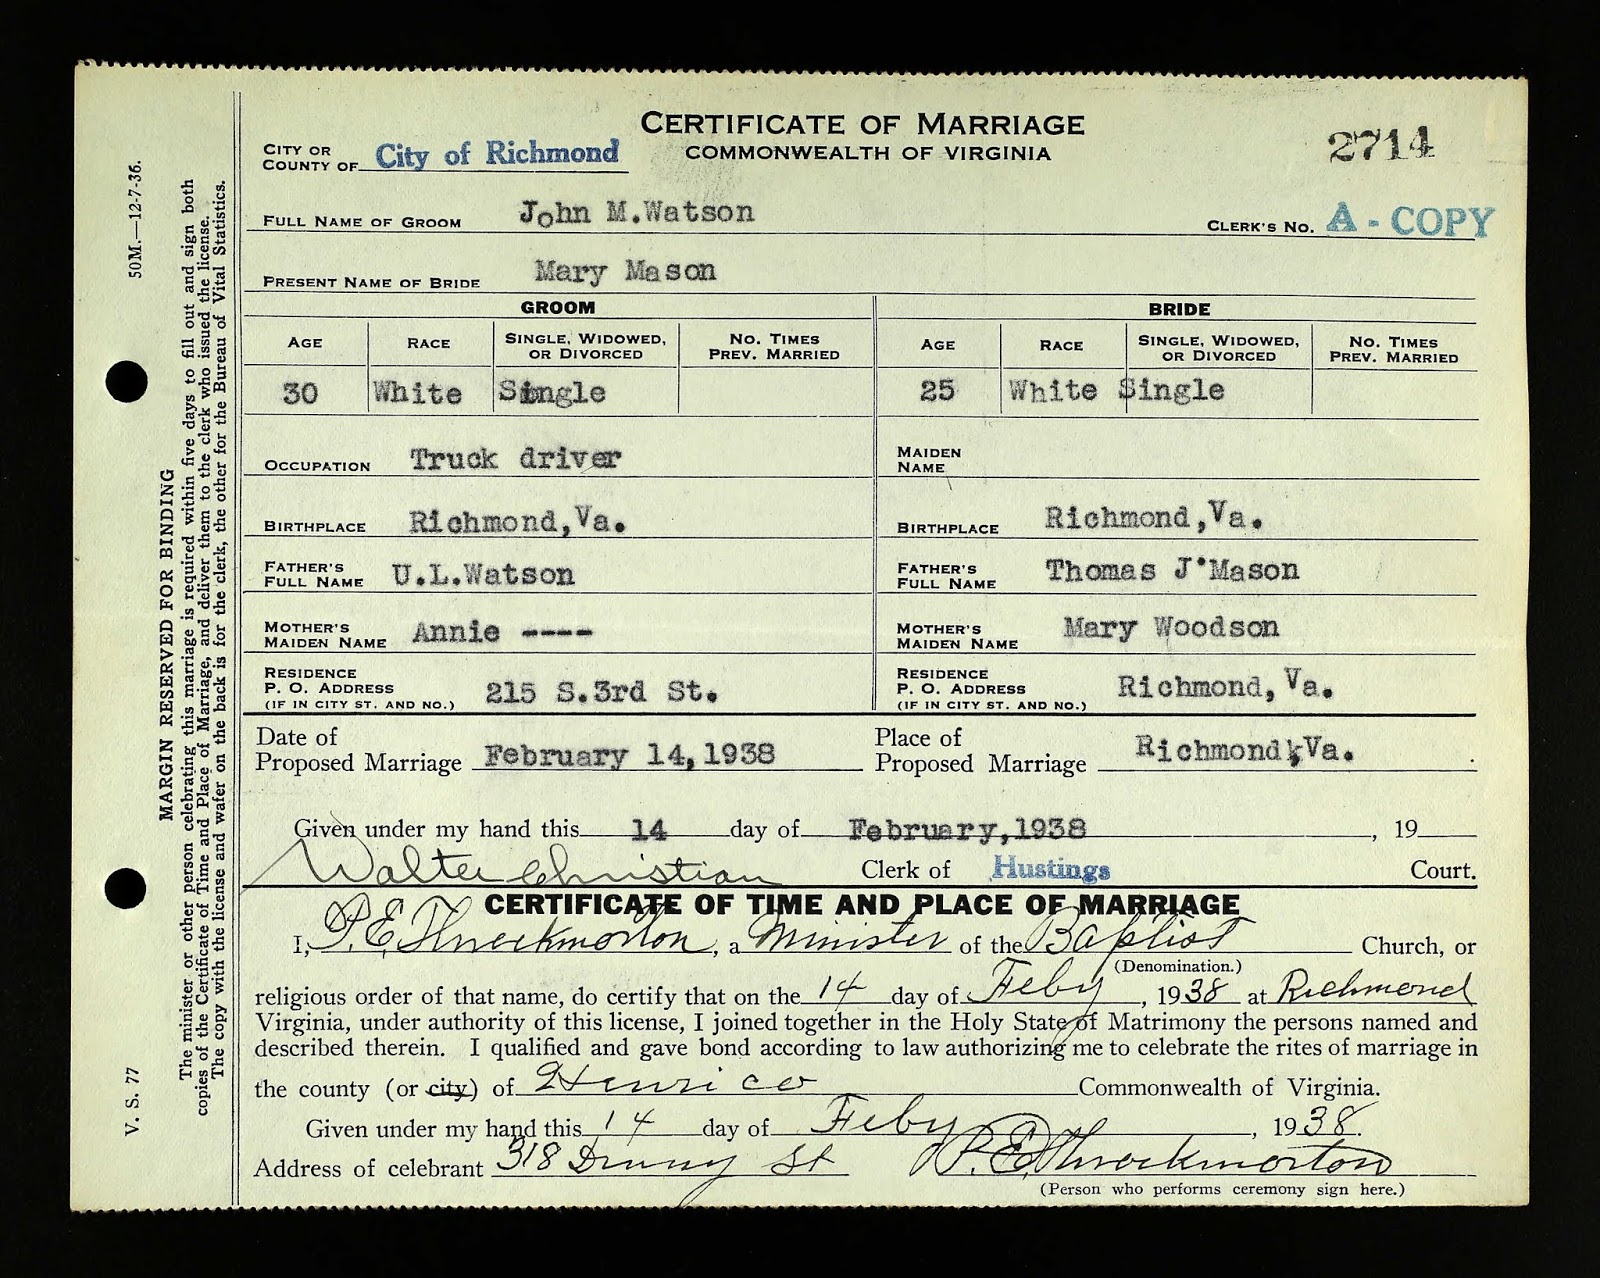 CERTIFICATE OF MARRIAGE
COMMONWEALTH OF VIRGINIA
2714
CITY OR
COUNTY OF City of Richmond
FULL NAME OF GROOM John M.Watson
CLERK'S NO. A - COPY
PRESENT NAME OF BRIDE Mary Mason
GROOM BRIDE
AGE RACE SINGLE, WIDOWED, OR DIVORCED NO. TIMES PREV. MARRIED AGE RACE SINGLE, WIDOWED, OR DIVORCED NO. TIMES PREV. MARRIED
30 White Single 25 White Single
OCCUPATION Truck driver
MAIDEN NAME
BIRTHPLACE Richmond,Va.
BIRTHPLACE Richmond,Va.
FATHER'S FULL NAME U.L.Watson
FATHER'S FULL NAME Thomas J.Mason
MOTHER'S MAIDEN NAME Annie ----
MOTHER'S MAIDEN NAME Mary Woodson
RESIDENCE P. O. ADDRESS (IF IN CITY ST. AND NO.) 215 S.3rd St.
RESIDENCE P. O. ADDRESS (IF IN CITY ST. AND NO.) Richmond,Va.
Date of Proposed Marriage February 14,1938
Place of Proposed Marriage Richmond,Va.
Given under my hand this 14 day of February,1938 , 19
Walter Christian Clerk of Hustings Court.
CERTIFICATE OF TIME AND PLACE OF MARRIAGE
I, P.E. Throckmorton, a Minister of the Baptist Church, or
(Denomination.)
religious order of that name, do certify that on the 14 day of Feby, 1938 at Richmond
Virginia, under authority of this license, I joined together in the Holy State of Matrimony the persons named and
described therein. I qualified and gave bond according to law authorizing me to celebrate the rites of marriage in
the county (or city) of Henrico Commonwealth of Virginia.
Given under my hand this 14 day of Feby, 1938.
Address of celebrant 318 St P.E. Throckmorton
(Person who performs ceremony sign here.)
50M.—12-7-36.
MARGIN RESERVED FOR BINDING
The minister or other person celebrating this marriage is required within five days to fill out and sign both
copies of the Certificate of Time and Place of Marriage, and deliver them to the clerk who issued the license.
The copy with the license and wafer on the back is for the clerk, the other for the Bureau of Vital Statistics.
V. S. 77